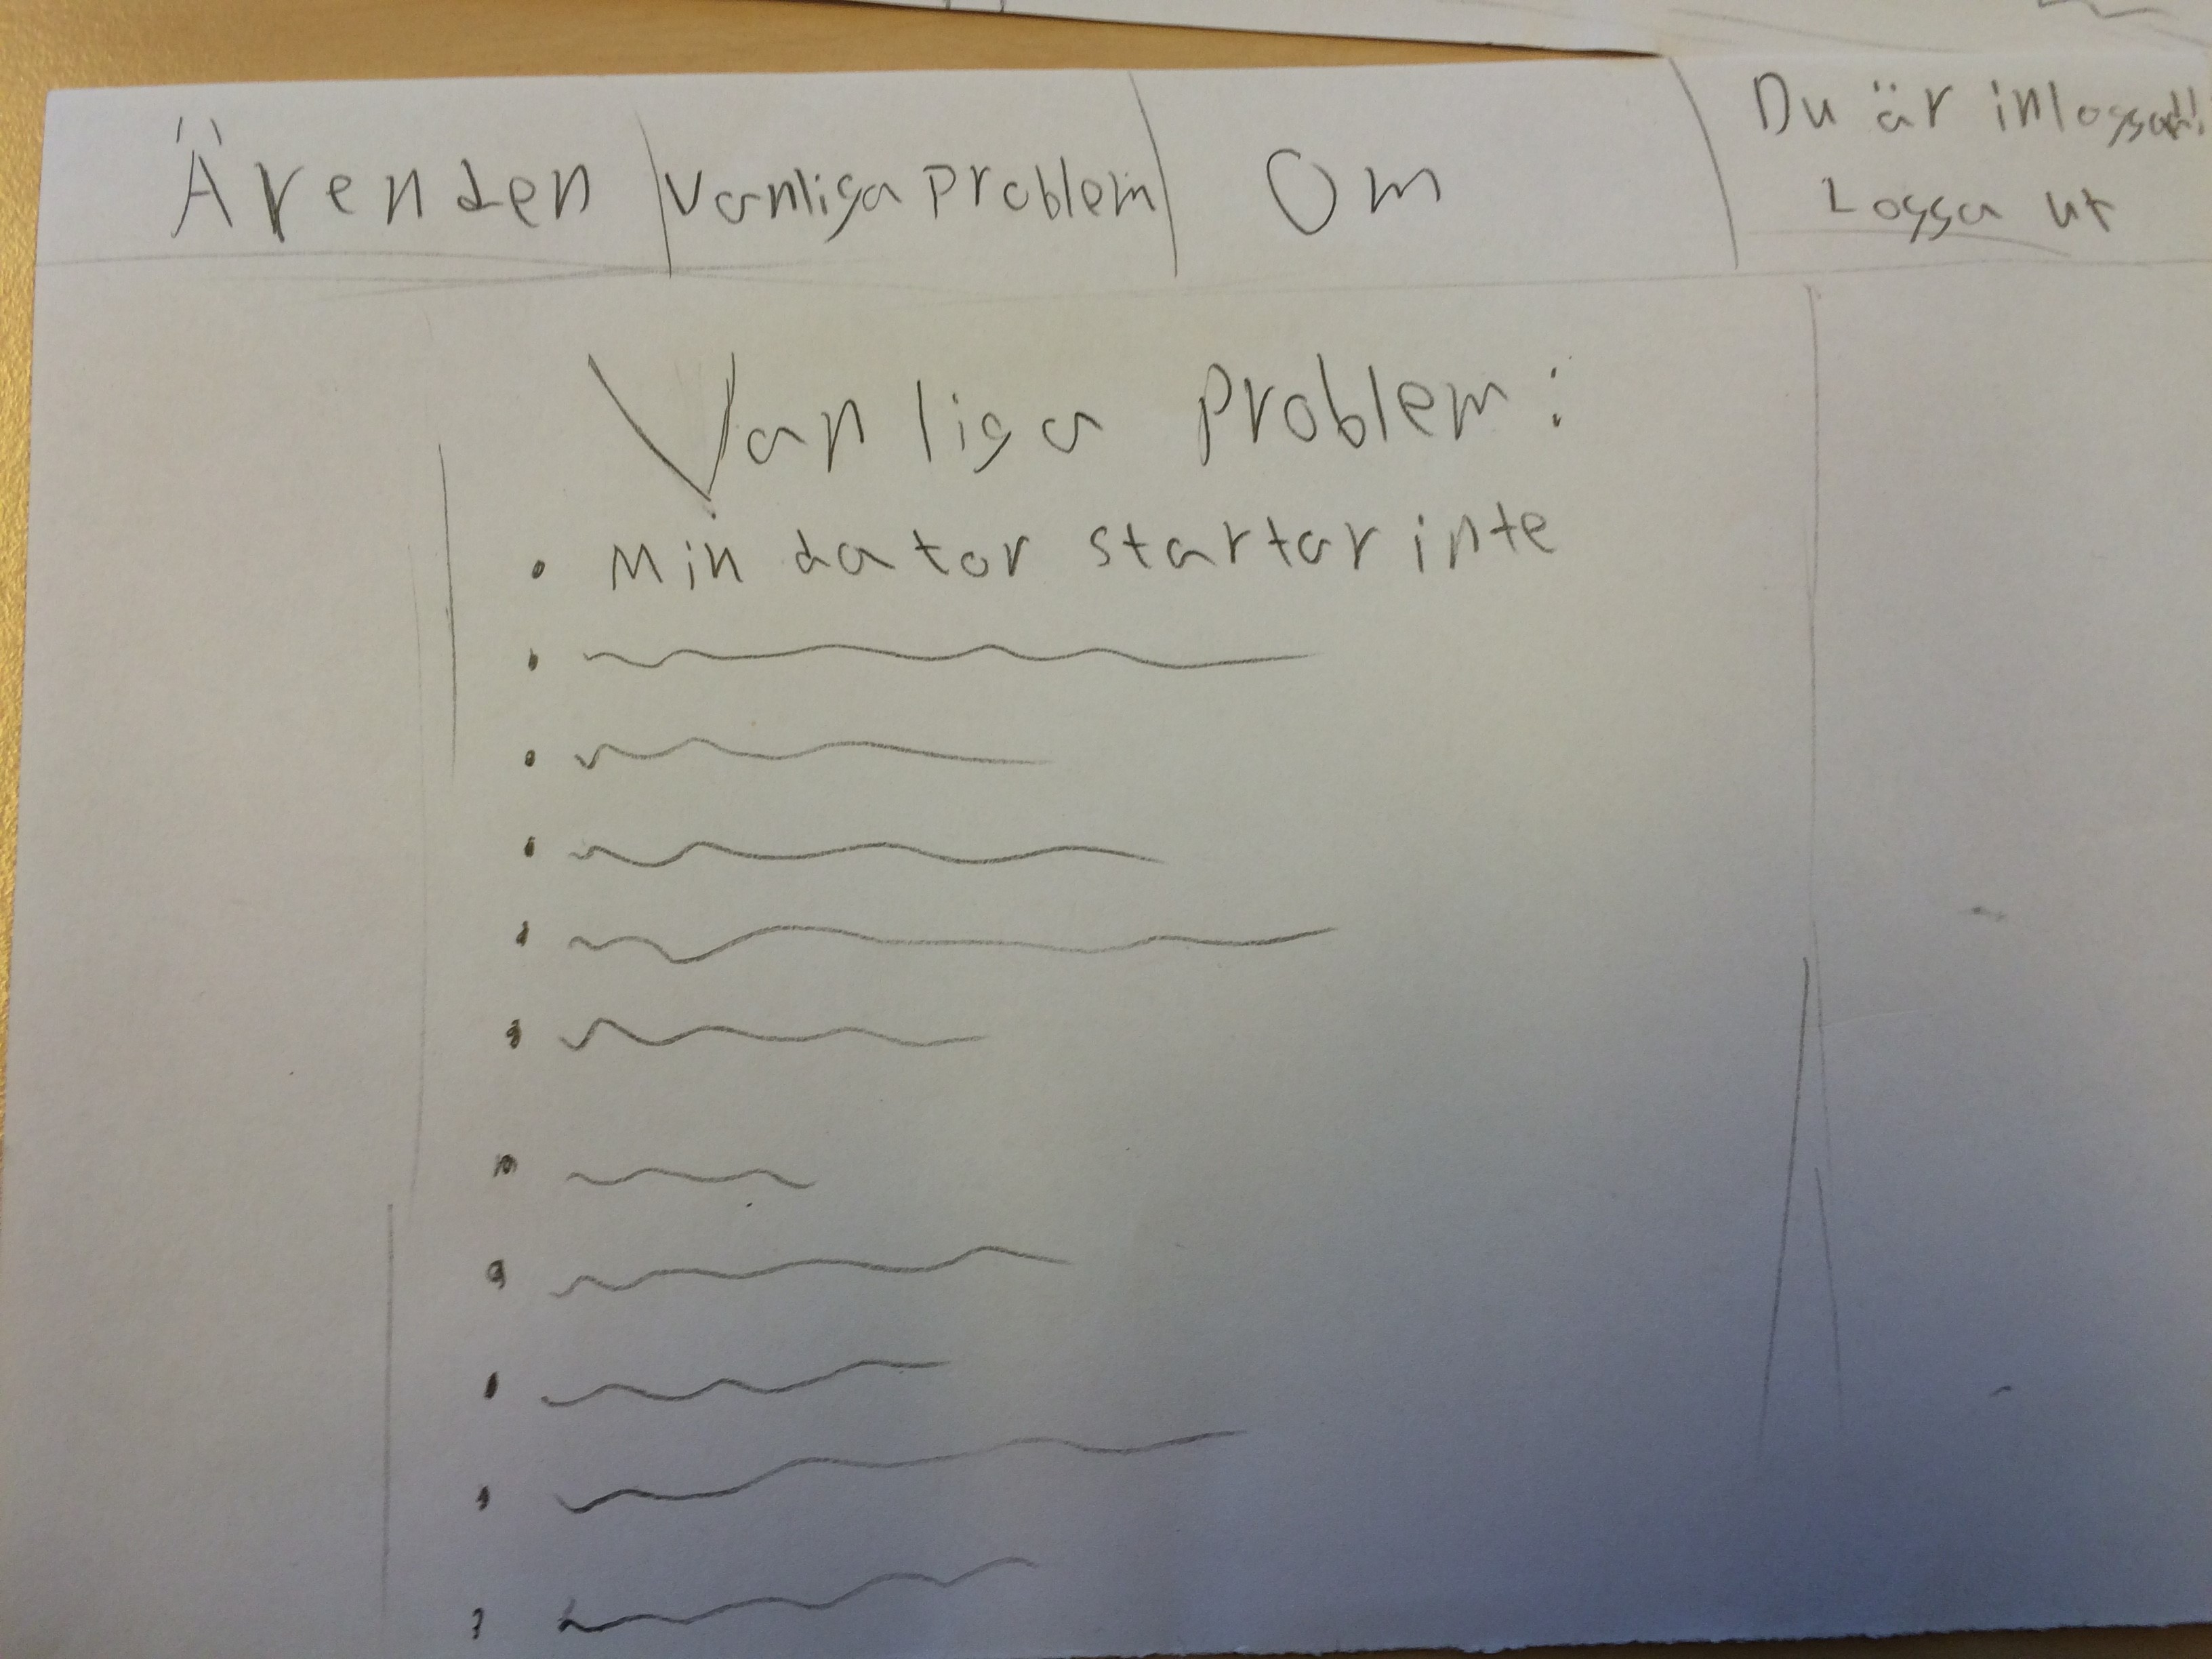 Ärenden
Vanliga Problem
Om
Du är inloggad!
Logga ut
Vanliga Problem:
• Min dator startar inte